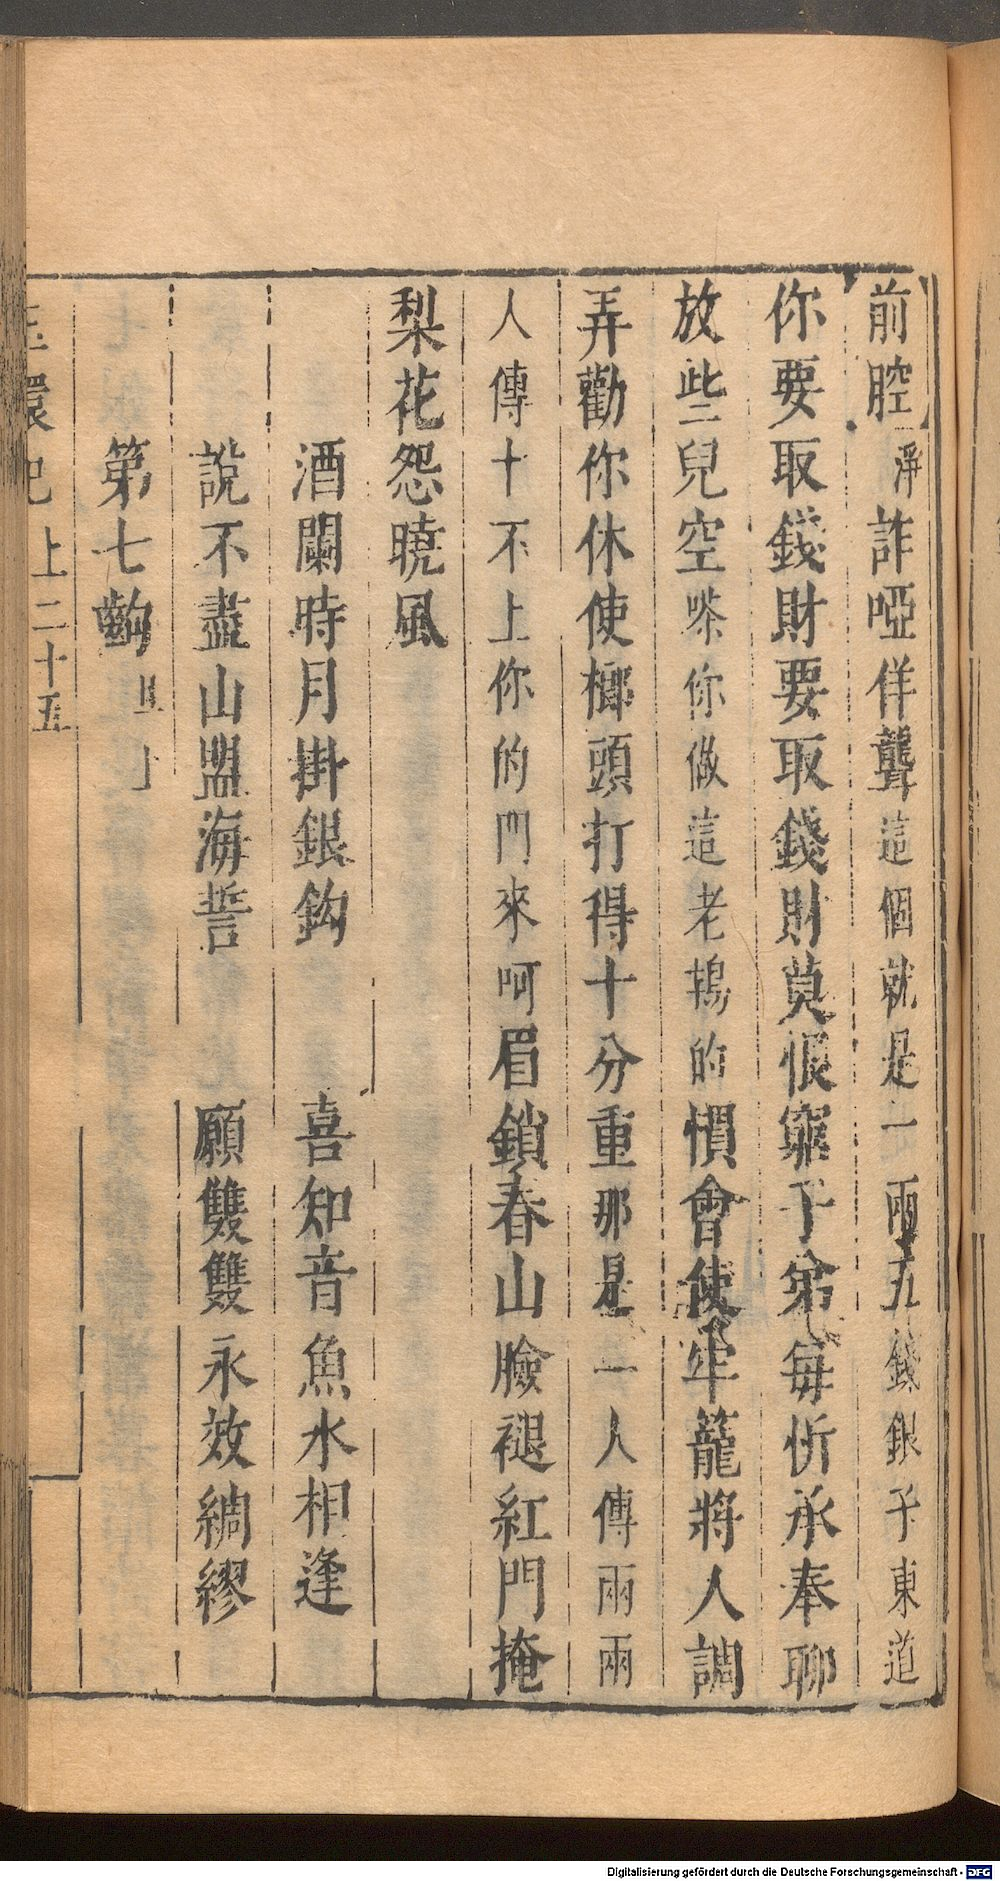 前腔淨詐啞佯聾這個就是一兩五錢銀子東道
你要取錢財要取錢財莫恨窮子弟每忻承奉聊
放些兒空嗏你做這老鴇的慣會使牢籠將人調
弄勸你休使榔頭打得十分重那是一人傳兩兩
人傳十不上你的門來呵眉鎖春山臉褪紅門掩
梨花怨曉風
酒闌時月掛銀鈎 喜知音魚水相逢
說不盡山盟海誓 願雙雙永效綢繆
第七齣
玉環記 上二十五
Digitalisierung gefördert durch die Deutsche Forschungsgemeinschaft - DFG